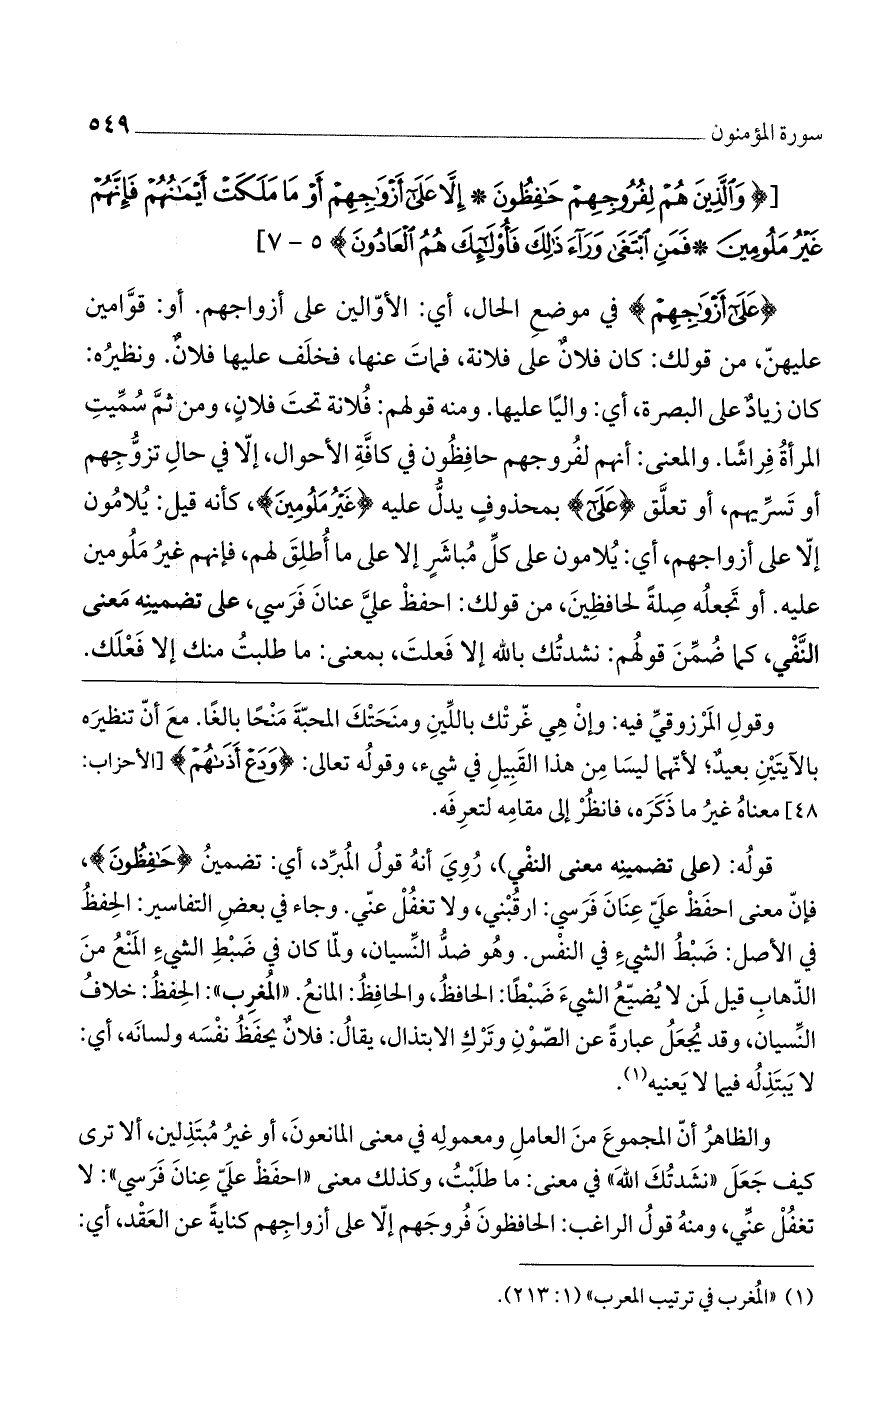 سورة المؤمنون ٥٤٩
[﴿ وَٱلَّذِينَ هُمْ لِفُرُوجِهِمْ حَٰفِظُونَ * إِلَّا عَلَىٰٓ أَزْوَٰجِهِمْ أَوْ مَا مَلَكَتْ أَيْمَٰنُهُمْ فَإِنَّهُمْ
غَيْرُ مَلُومِينَ * فَمَنِ ٱبْتَغَىٰ وَرَآءَ ذَٰلِكَ فَأُوْلَٰٓئِكَ هُمُ ٱلْعَادُونَ ﴾ ٥ - ٧]
﴿عَلَىٰٓ أَزْوَٰجِهِمْ ﴾ في موضعِ الحال، أي: الأوّالين على أزواجهم. أو: قوَّامين
عليهنّ، من قولك: كان فلانٌ على فلانة، فماتَ عنها، فخلَف عليها فلانٌ. ونظيرُه:
كان زيادٌ على البصرة، أي: واليًا عليها. ومنه قولهم: فُلانة تحتَ فلانٍ، ومن ثمَّ سُمِّيتِ
المرأةُ فِراشًا. والمعنى: أنهم لفُروجهم حافِظُون في كافَّةِ الأحوال، إلّا في حالِ تزوُّجِهم
أو تَسرِّيهم، أو تعلَّق ﴿عَلَىٰٓ﴾ بمحذوفٍ يدلُّ عليه ﴿غَيْرُ مَلُومِينَ﴾، كأنه قيل: يُلامُون
إلّا على أزواجهم، أي: يُلامون على كلِّ مُباشَرٍ إلا على ما أُطلِقَ لهم، فإنهم غيرُ مَلُومين
عليه. أو تَجعلُه صِلةً لحافظِينَ، من قولك: احفظْ عليَّ عنانَ فَرَسي، على تضمينِه مَعنى
النَّفْي، كما ضُمِّنَ قولُهم: نشدتُك بالله إلا فَعلتَ، بمعنى: ما طلبتُ منك إلا فَعْلَك.
وقولِ المَرْزوقيِّ فيه: وإنْ هِي غّرتْك باللِّينِ ومنَحَتْكَ المحبّةَ مَنْحًا بالغًا. معَ أنّ تنظيرَه
بالآيتَيْنِ بعيدٌ؛ لأنّهما ليسَا مِن هذا القَبِيلِ في شيء، وقولُه تعالى: ﴿وَدَعْ أَذَىٰهُمْ﴾ [الأحزاب:
٤٨] معناهُ غيرُ ما ذَكَرَه، فانظُرْ إلى مقامِه لتعرِفَه.
قولُه: (على تضمينِه معنى النفْي)، رُوِيَ أنهُ قولُ المُبرِّد، أي: تضمينُ ﴿حَٰفِظُونَ﴾،
فإنّ معنى احفَظْ عليّ عِنَانَ فَرَسي: ارقُبْني، ولا تغفُلْ عنّي. وجاء في بعضِ التفاسير: الحِفظُ
في الأصل: ضَبْطُ الشيءِ في النفْس. وهُو ضدُّ النِّسيان، ولمّا كان في ضَبْطِ الشيءِ المَنْعُ منَ
الذّهابِ قيل لمَن لا يُضيِّعُ الشيءَ ضَبْطًا: الحافظُ، والحافِظُ: المانعُ. «المُغرِب»: الحِفظُ: خلافُ
النِّسيان، وقد يُجعَلُ عبارةً عن الصّوْنِ وتَرْكِ الابتذال، يقالُ: فلانٌ يحفَظُ نفْسَه ولسانَه، أي:
لا يَبتَذِلُه فيما لا يَعنيه(١).
والظاهرُ أنّ المجموعَ منَ العاملِ ومعمولِه في معنى المانعونَ، أو غيرُ مُبتَذِلين، ألا ترى
كيف جَعَلَ «نشَدتُكَ اللهَ» في معنى: ما طلَبْتُ، وكذلك معنى «احفَظْ عليّ عِنانَ فَرَسي»: لا
تغفُلْ عنِّي، ومنهُ قولُ الراغب: الحافظونَ فُروجَهم إلّا على أزواجِهم كنايةً عن العَقْد، أي:
(١) «المُغرب في ترتيب المعرب» (١: ٢١٣).